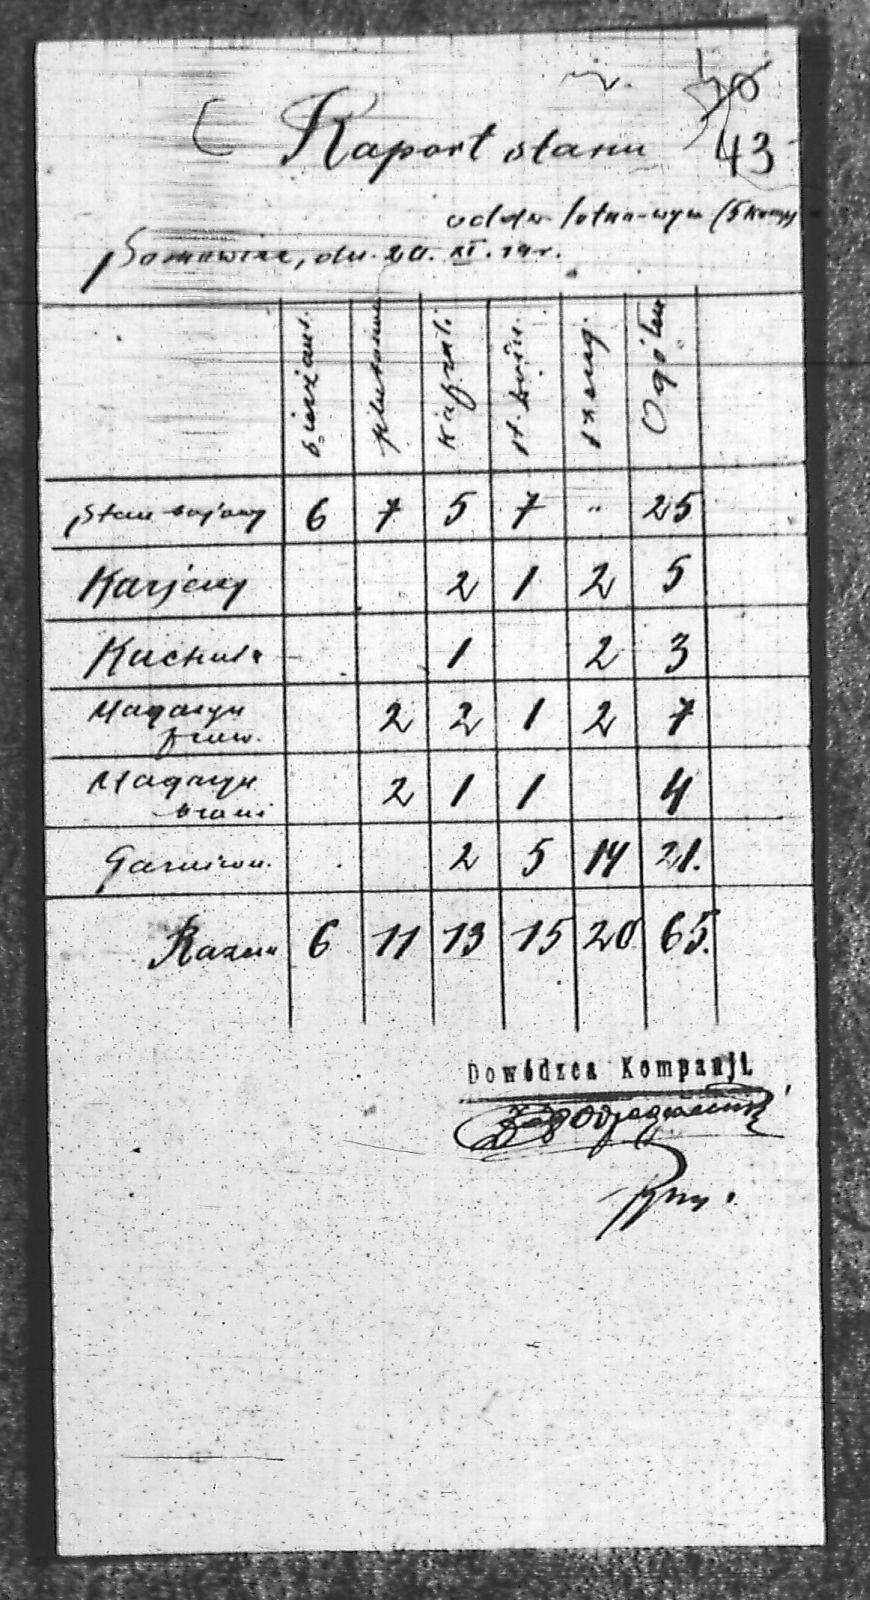 43
Raport stanu
Sosnowiec, dn. 20. XI. 19 r.
sierżant. plutonow. kaprali st. żołn. szereg. Ogółem
Stan bojowy 6 7 5 7 " 25
Karjery 2 1 2 5
Kuchnia 1 2 3
Magazyn 2 2 1 2 7
prow.
Magazyn 2 1 1 4
broni
Garnizon. 2 5 14 21.
Razem 6 11 13 15 20 65.
Dowódzca Kompanji.